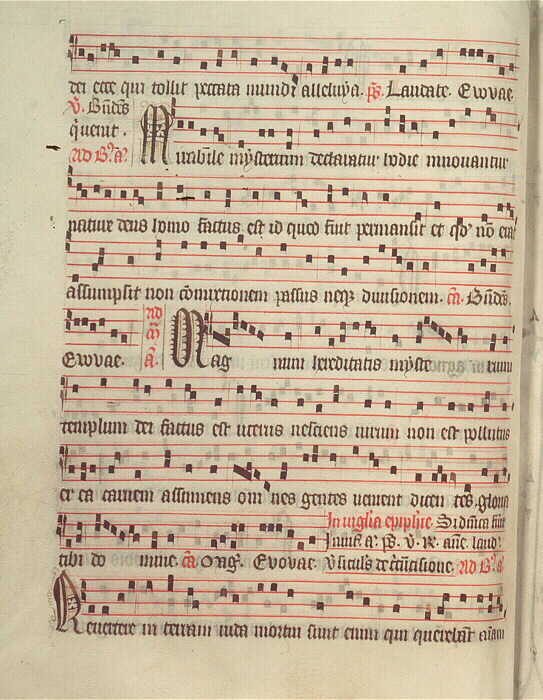 dei ecce qui tollit peccata mundi alleluya. ps. Laudate. Evovae.
V. Bn̄dc̄s
q̄ venit.
Ad B. a. Mirabile mysterium declaratur hodie innovantur
nature deus homo factus est id quod fuit permansit et qd̄ nō erat
assumpsit non cōmixtionem passus neqꝫ divisionem. ca. Bn̄dc̄s.
Evovae. Ad m̄ a. Mag num hereditatis myste rium
templum dei factus est uterus nesciens virum non est pollutus
ex ea carnem assumens om nes gentes venient dicen tes gloria
In vigl'ia epiphie Si dn̄ica fūit
Invit. a. ps. v. R. an̄e. laud'.
tibi do mine. ca. Mag. Evovae. V̄siculs de c̄cūcisione. Ad B. a.
Revertere in terram iuda mortui sunt enim qui querebāt aīam